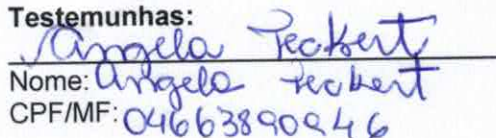 Testemunhas:
Angela Feckert
Nome: Angela Feckert
CPF/MF: 04663890946